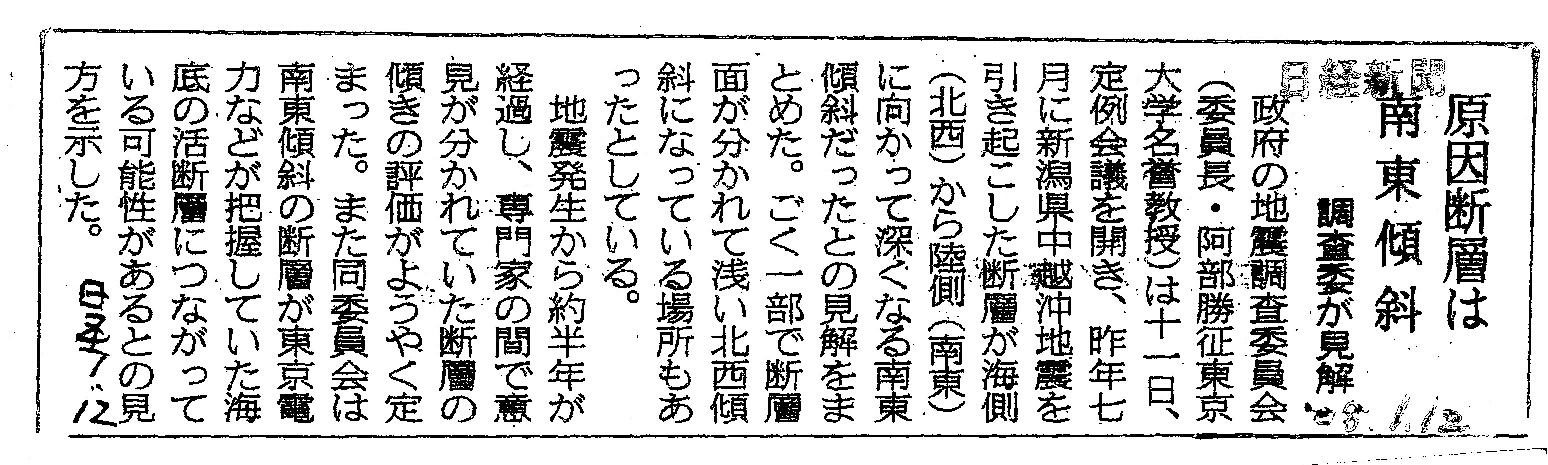 日経新聞
原因断層は
南東傾斜
調査委が見解
'08.1.12
政府の地震調査委員会
(委員長・阿部勝征東京
大学名誉教授)は十一日、
定例会議を開き、昨年七
月に新潟県中越沖地震を
引き起こした断層が海側
(北西)から陸側(南東)
に向かって深くなる南東
傾斜だったとの見解をま
とめた。ごく一部で断層
面が分かれて浅い北西傾
斜になっている場所もあ
ったとしている。
地震発生から約半年が
経過し、専門家の間で意
見が分かれていた断層の
傾きの評価がようやく定
まった。また同委員会は
南東傾斜の断層が東京電
力などが把握していた海
底の活断層につながって
いる可能性があるとの見
方を示した。
1.12